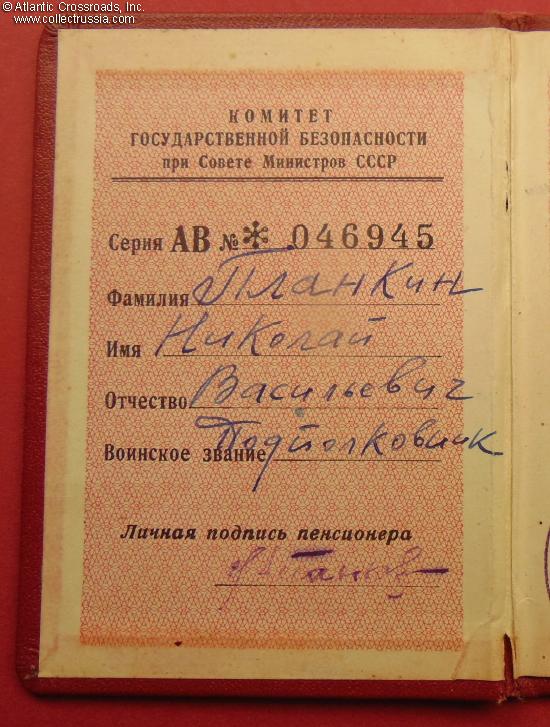 © Atlantic Crossroads, Inc.
www.collectrussia.com
КОМИТЕТ
ГОСУДАРСТВЕННОЙ БЕЗОПАСНОСТИ
при Совете Министров СССР
Серия АВ № * 046945
Фамилия Планкин
Имя Николай
Отчество Васильевич
Воинское звание Подполковник
Личная подпись пенсионера